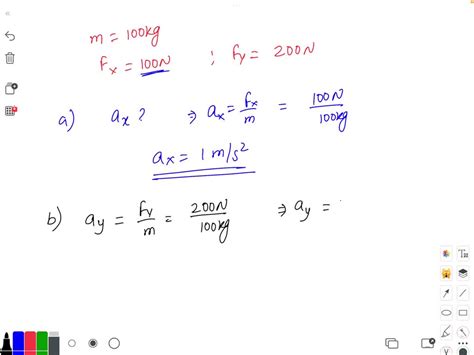 m = 100kg
Fx = 100N ; Fy = 200N
a) ax? ⇒ ax = Fx/m = 100N/100kg
ax = 1 m/s²
b) ay = Fy/m = 200N/100kg ⇒ ay =